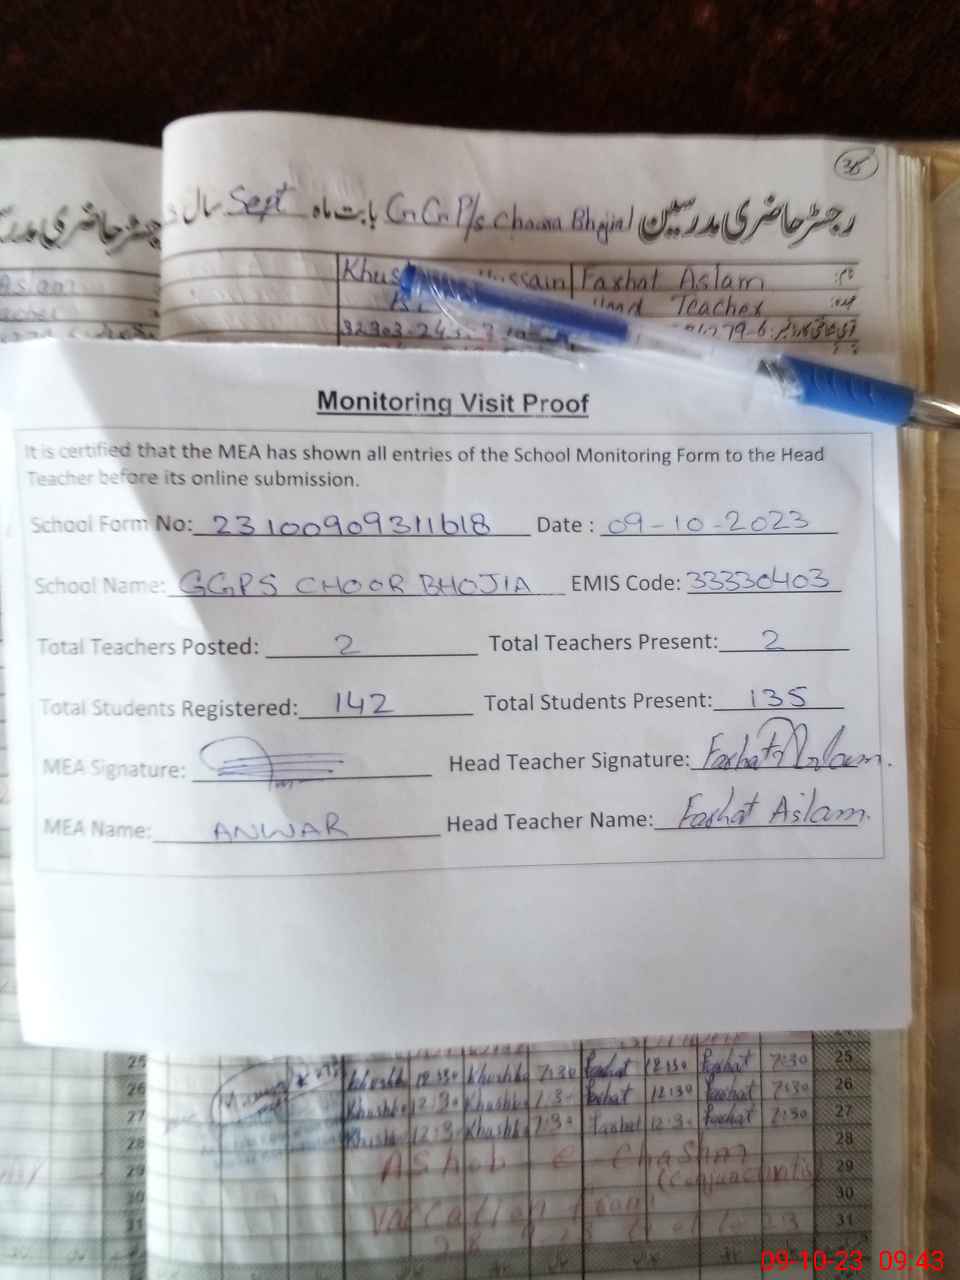 36
رجسٹر حاضری مدرسین GGP/s Choora Bhojia بابت ماہ Sept سال
Aslam
نام: Farhat Aslam Hussain Khus
عہدہ: Head Teacher
32303-24
279-6
Monitoring Visit Proof
It is certified that the MEA has shown all entries of the School Monitoring Form to the Head
Teacher before its online submission.
School Form No: 23100909311618 Date : 09-10-2023
School Name: GGPS CHOOR BHOJIA EMIS Code: 33330403
Total Teachers Posted: 2 Total Teachers Present: 2
Total Students Registered: 142 Total Students Present: 135
MEA Signature: Head Teacher Signature: Farhat Aslam.
MEA Name: ANWAR Head Teacher Name: Farhat Aslam.
25 Khushb 12:30 Khushb 7:30 Farhat 12:30 Farhat 7:30 25
26 Khushb 12:30 Khushb 7:30 Farhat 12:30 Farhat 7:30 26
27 Khushb 12:30 Khushb 7:30 Farhat 12:30 Farhat 7:30 27
28 28
29 Ashob-e-Chashm 29
(Conjunctivitis)
30 30
31 vaccation from 31
09-10-23 09:43